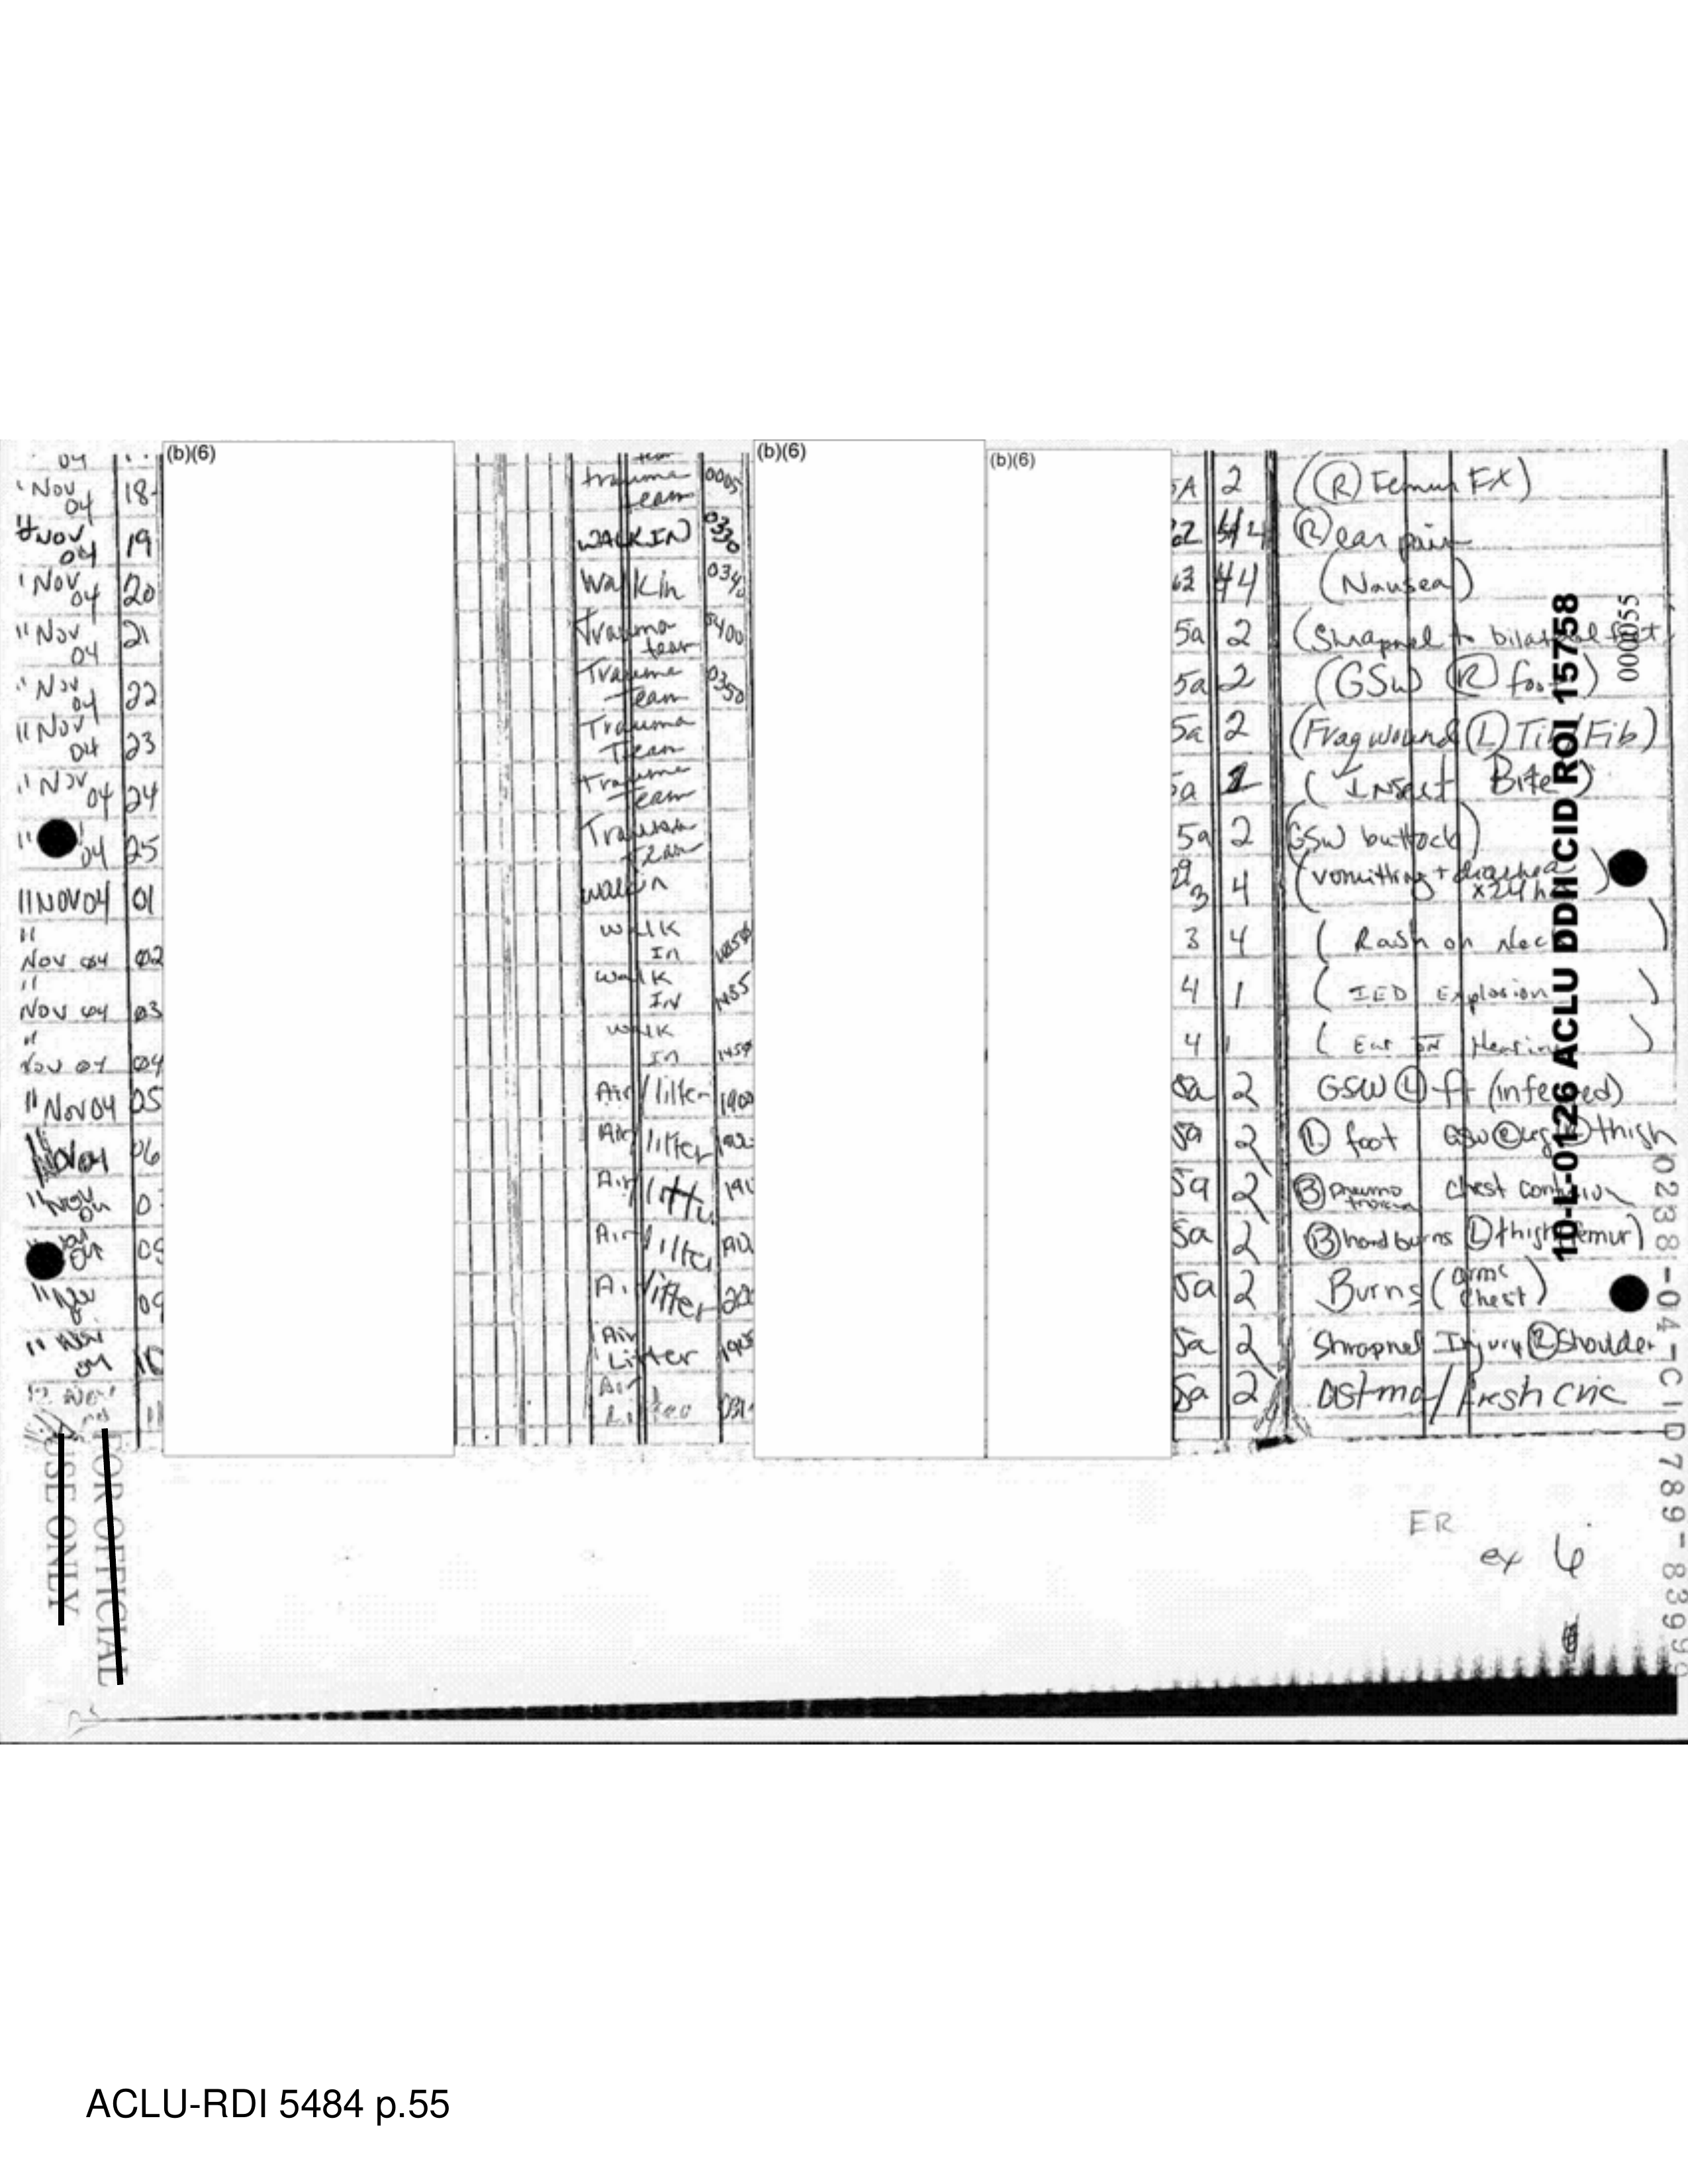 (b)(6) (b)(6) (b)(6)
04
Nov 04 18 trauma team 0005 5A 2 (Ⓡ Femur FX)
Nov 04 19 WALK IN 0330 4 Ⓡ ear pain
Nov 04 20 Walk in 0340 4 (Nausea)
11 Nov 04 21 Trauma team 0400 5a 2 (Shrapnel to bilateral feet
Nov 04 22 Trauma Team 0350 5a 2 (GSW Ⓡ foot)
11 Nov 04 23 Trauma Team 5a 2 (Frag wound Ⓛ Tib/Fib)
11 Nov 04 24 Trauma Team 5a (Insect Bite)
11 04 25 Trauma Team 5a 2 GSW buttock)
11 NOV 04 01 walk in 3 4 (vomitting + diarrhea x 24 h
11 Nov 04 02 Walk In 3 4 ( Rash on Neck )
11 Nov 04 03 Walk IN 1455 4 1 ( IED Explosion )
11 Nov 04 04 Walk In 4 1 ( Ear Hearing )
11 Nov 04 05 Air/litter 1900 5a 2 GSW Ⓛ ft (infected)
Nov 04 06 Air/litter 5a 2 Ⓛ foot GSW leg thigh
11 Nov 04 Air/litter 5a 2 Ⓑ pneumo thorax Chest Contusion
04 Air/litter 5a 2 Ⓑ hand burns Ⓛ thigh femur)
11 Nov 09 Air/litter 5a 2 Burns (arms Chest)
11 Nov 04 10 Air Litter 5a 2 Shrapnel Injury Shoulder
11 Air 5a 2
FOR OFFICIAL USE ONLY
ER
ex 6
10-L-0126 ACLU DDII CID ROI 15758
000055
0238-04-CID789-8399
ACLU-RDI 5484 p.55